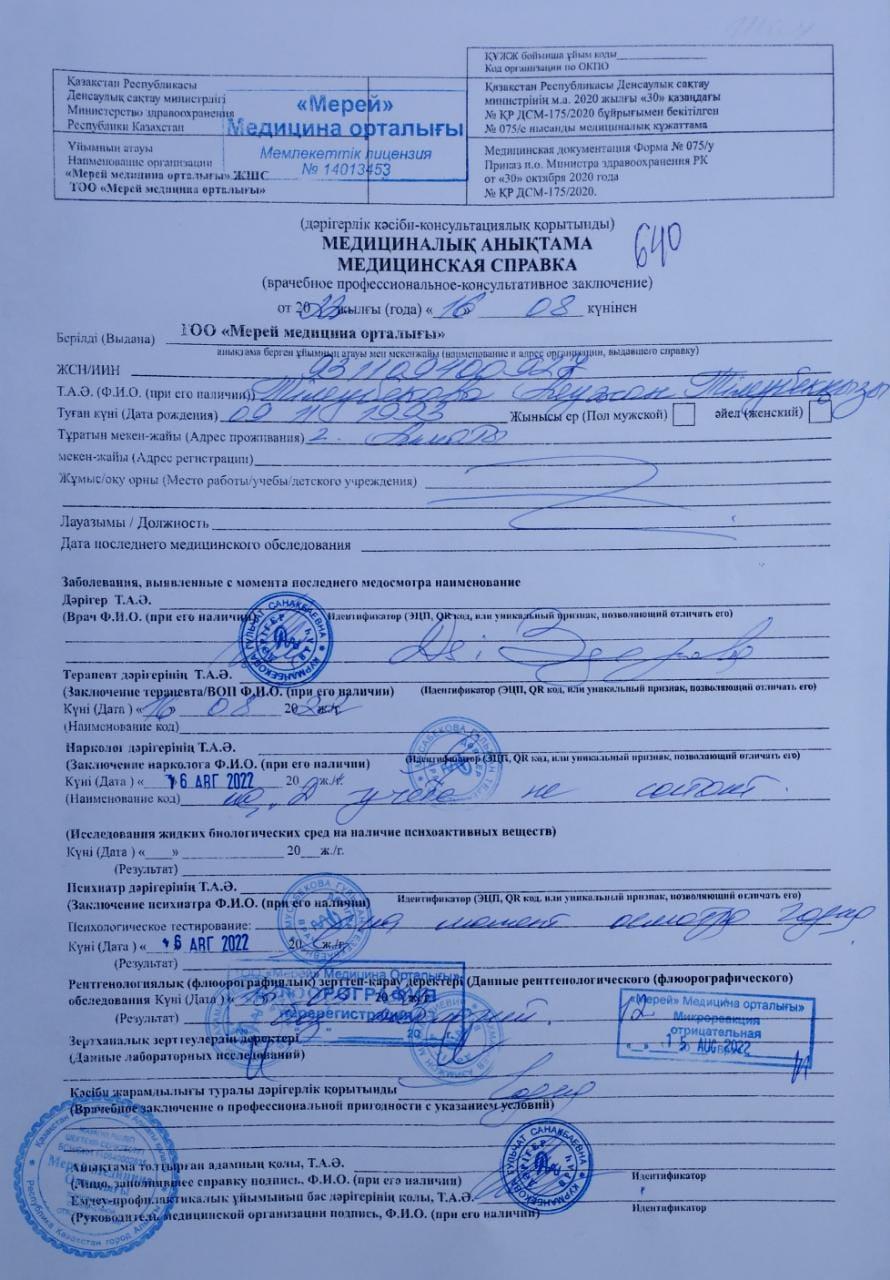 ҚҰЖЖ бойынша ұйым коды
Код организации по ОКПО
Қазақстан Республикасы
Денсаулық сақтау министрлігі
Министерство здравоохранения
Республики Казахстан
«Мерей»
Медицина орталығы
Мемлекеттік лицензия
№ 14013453
Қазақстан Республикасы Денсаулық сақтау
министрінің м.а. 2020 жылғы «30» қазандағы
№ ҚР ДСМ-175/2020 бұйрығымен бекітілген
№ 075/е нысанды медициналық құжаттама
Ұйымның атауы
Наименование организации
«Мерей медицина орталығы» ЖШС
ТОО «Мерей медицина орталығы»
Медицинская документация Форма № 075/у
Приказ и.о. Министра здравоохранения РК
от «30» октября 2020 года
№ ҚР ДСМ-175/2020.
(дәрігерлік кәсіби-консультациялық қорытынды)
МЕДИЦИНАЛЫҚ АНЫҚТАМА
640
МЕДИЦИНСКАЯ СПРАВКА
(врачебное профессиональное-консультативное заключение)
от 2022 жылғы (года) «16» 08 күнінен
Берілді (Выдана) ТОО «Мерей медицина орталығы»
анықтама берген ұйымның атауы мен мекенжайы (наименование и адрес организации, выдавшего справку)
ЖСН/ИИН
Т.А.Ә. (Ф.И.О. (при его наличии)) Тілеубекова Тілеубекқызы
Туған күні (Дата рождения) 09 11 1993 Жынысы ер (Пол мужской) әйел (женский)
Тұратын мекен-жайы (Адрес проживания) г. Алматы
мекен-жайы (Адрес регистрации)
Жұмыс/оқу орны (Место работы/учебы/детского учреждения)
Лауазымы / Должность
Дата последнего медицинского обследования
Заболевания, выявленные с момента последнего медосмотра наименование
Дәрігер Т.А.Ә.
(Врач Ф.И.О. (при его наличии) Идентификатор (ЭЦП, QR код, или уникальный признак, позволяющий отличать его)
КУРМАНБЕКОВА ГУЛЬЧАТ САНАКБАЕВНА
ДӘРІГЕР
ВРАЧ
Ds: Здорова
Терапевт дәрігерінің Т.А.Ә.
(Заключение терапевта/ВОП Ф.И.О. (при его наличии) (Идентификатор (ЭЦП, QR код, или уникальный признак, позволяющий отличать его)
Күні (Дата ) «16» 08 2022
(Наименование код)
Нарколог дәрігерінің Т.А.Ә.
(Заключение нарколога Ф.И.О. (при его наличии) (Идентификатор (ЭЦП, QR код, или уникальный признак, позволяющий отличать его)
Күні (Дата ) « 16 АВГ 2022 20 ж./г.
(Наименование код) на "Д" учёте не состоит.
(Исследования жидких биологических сред на наличие психоактивных веществ)
Күні (Дата ) «    » 20 ж./г.
(Результат)
Психиатр дәрігерінің Т.А.Ә.
(Заключение психиатра Ф.И.О. (при его наличии) Идентификатор (ЭЦП, QR код, или уникальный признак, позволяющий отличать его)
Психологическое тестирование: на момент осмотра годна
Күні (Дата ) « 16 АВГ 2022 20 ж./г.
(Результат)
ТОО «Мерей» Медицина Орталығы»
Рентгенологиялық (флюорографиялық) зерттеп-қарау деректері (Данные рентгенологического (флюорографического)
обследования Күні (Дата ) « 20
ФЛЮОРОГРАФИЯ
перерегистрация
(Результат)
«Мерей» Медицина орталығы»
Микрореакция
отрицательная
15 AUG 2022
Зертханалық зерттеулердің деректері
(Данные лабораторных исследований)
Кәсіби жарамдылығы туралы дәрігерлік қорытынды годна
(Врачебное заключение о профессиональной пригодности с указанием условий)
КУРМАНБЕКОВА ГУЛЬЧАТ САНАКБАЕВНА
ДӘРІГЕР
ВРАЧ
Анықтама толтырған адамның қолы, Т.А.Ә.
(Лицо, заполнившее справку подпись, Ф.И.О. (при его наличии) Идентификатор
Емдеу-профилактикалық ұйымының бас дәрігерінің қолы, Т.А.Ә.
(Руководитель медицинской организации подпись, Ф.И.О. (при его наличии) Идентификатор